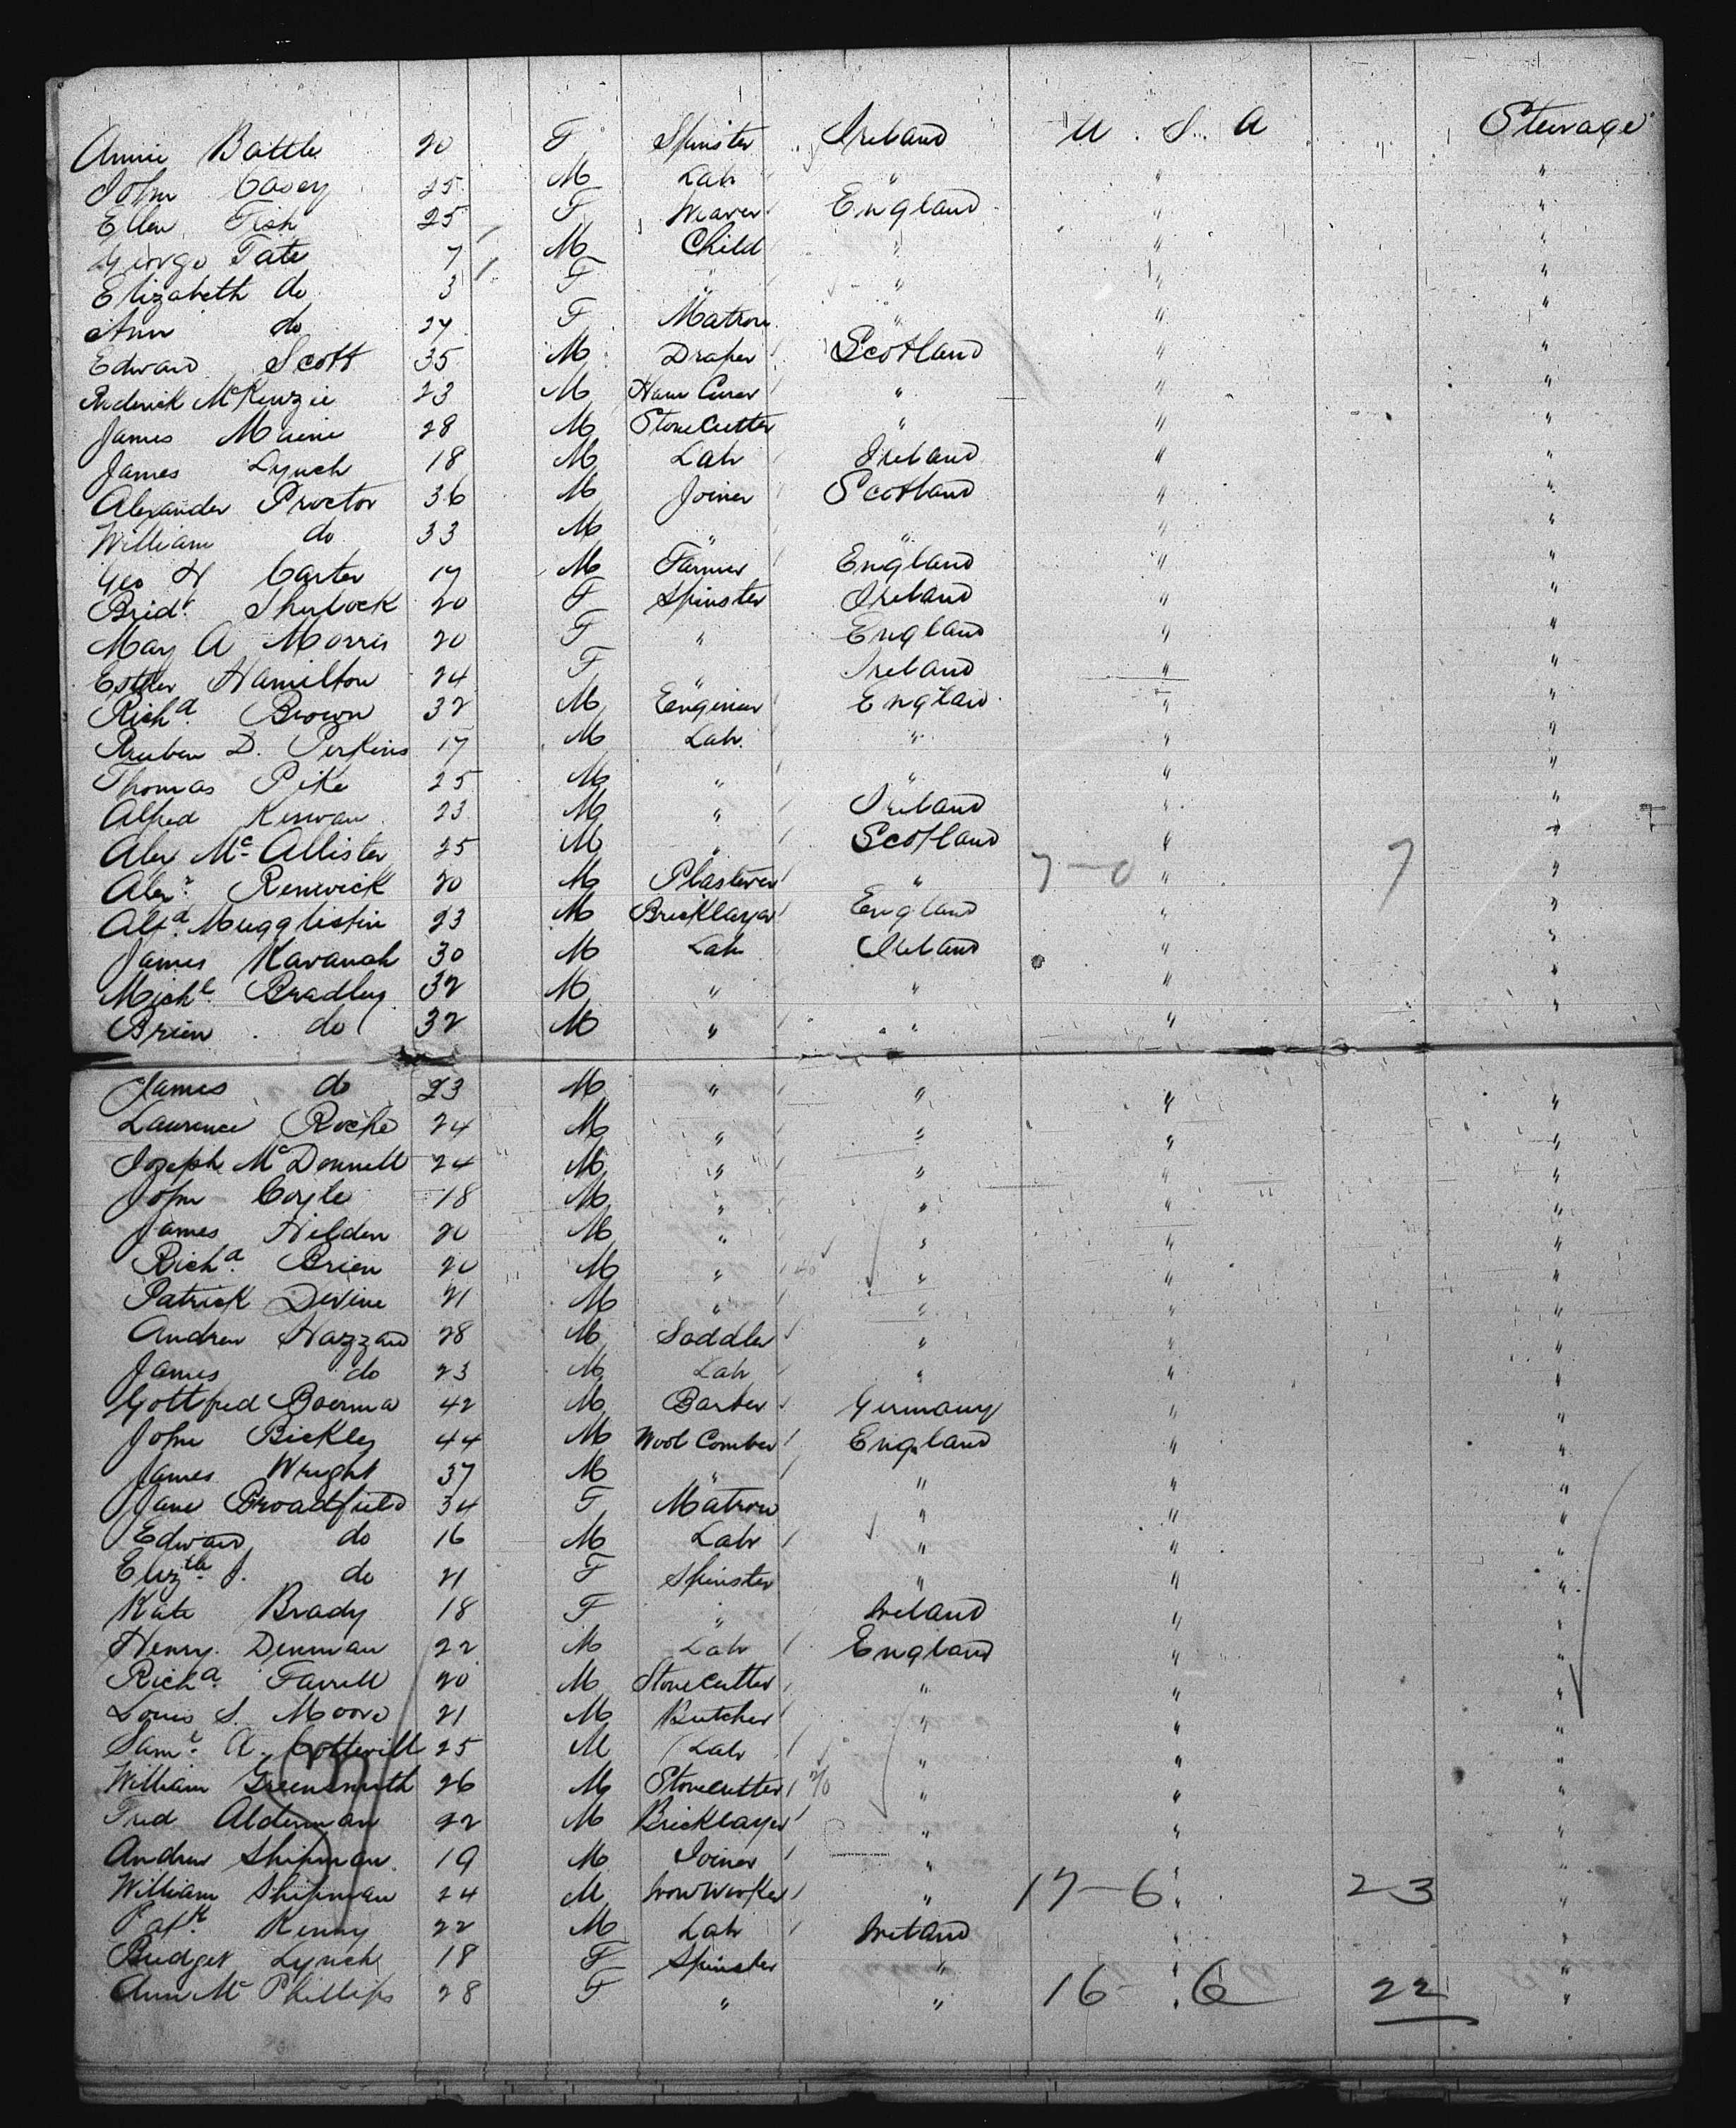 Annie Battle 20 F Spinster Ireland U. S. A Steerage
John Casey 25 M Lab " " "
Ellen Fish 25 F Weaver England " "
George Tate 7 M Child " " "
Elizabeth do 3 F " " " "
Ann do 27 F Matron " " "
Edward Scott 35 M Draper Scotland " "
Roderick McKenzie 23 M Ham Curer " " "
James 28 M Stonecutter " " "
James Lynch 18 M Lab Ireland " "
Alexander Proctor 36 M Joiner Scotland " "
William do 33 M " " " "
Geo H Carter 17 M Farmer England " "
Bridt Sherlock 20 F Spinster Ireland " "
Mary A Morris 20 F " England " "
Esther Hamilton 24 F " Ireland " "
Richd Brown 32 M Engineer England " "
Reuben D. Perkins 17 M Lab " " "
Thomas Pike 25 M " " " "
Alfred Kirwan 23 M " Ireland " "
Alex McAllister 25 M " Scotland " "
Alexr Renwick 20 M Plasterer " 7-0 " 7 "
Alfd Mugglestin 23 M Bricklayer England " "
James Kavanah 30 M Lab Ireland " "
Michl Bradley 32 M " " " "
Brien do 32 M " " " "
James do 23 M " " " "
Laurence Roche 24 M " " " "
Joseph McDonnell 24 M " " " "
John Coyle 18 M " " " "
James Hilden 20 M " " " "
Richd Brien 20 M " " " "
Patrick Devine 21 M " " " "
Andrew Hazzard 28 M Saddler " " "
James do 23 M Lab " " "
Gottfried 42 M Barber Germany " "
John Bickley 44 M Wool Comber England " "
James Wright 37 M " " " "
Jane Broadfield 34 F Matron " " "
Edward do 16 M Lab " " "
Elizth J. do 21 F Spinster " " "
Kate Brady 18 F " Ireland " "
Henry Denman 22 M Lab England " "
Richd Farrell 20 M Stonecutter " " "
Louis S. Moore 21 M Butcher " " "
Saml A. Cotterill 25 M Lab " " "
William Greensmith 26 M Stonecutter " " "
Fred Alderman 22 M Bricklayer " " "
Andrew Shipman 19 M Joiner " " "
William Shipman 24 M Ironworker " 17-6 " 23 "
Patk Kenny 22 M Lab Ireland " "
Bridget Lynch 18 F Spinster " " "
Ann McPhillips 28 F " " 16-6 " 22 "